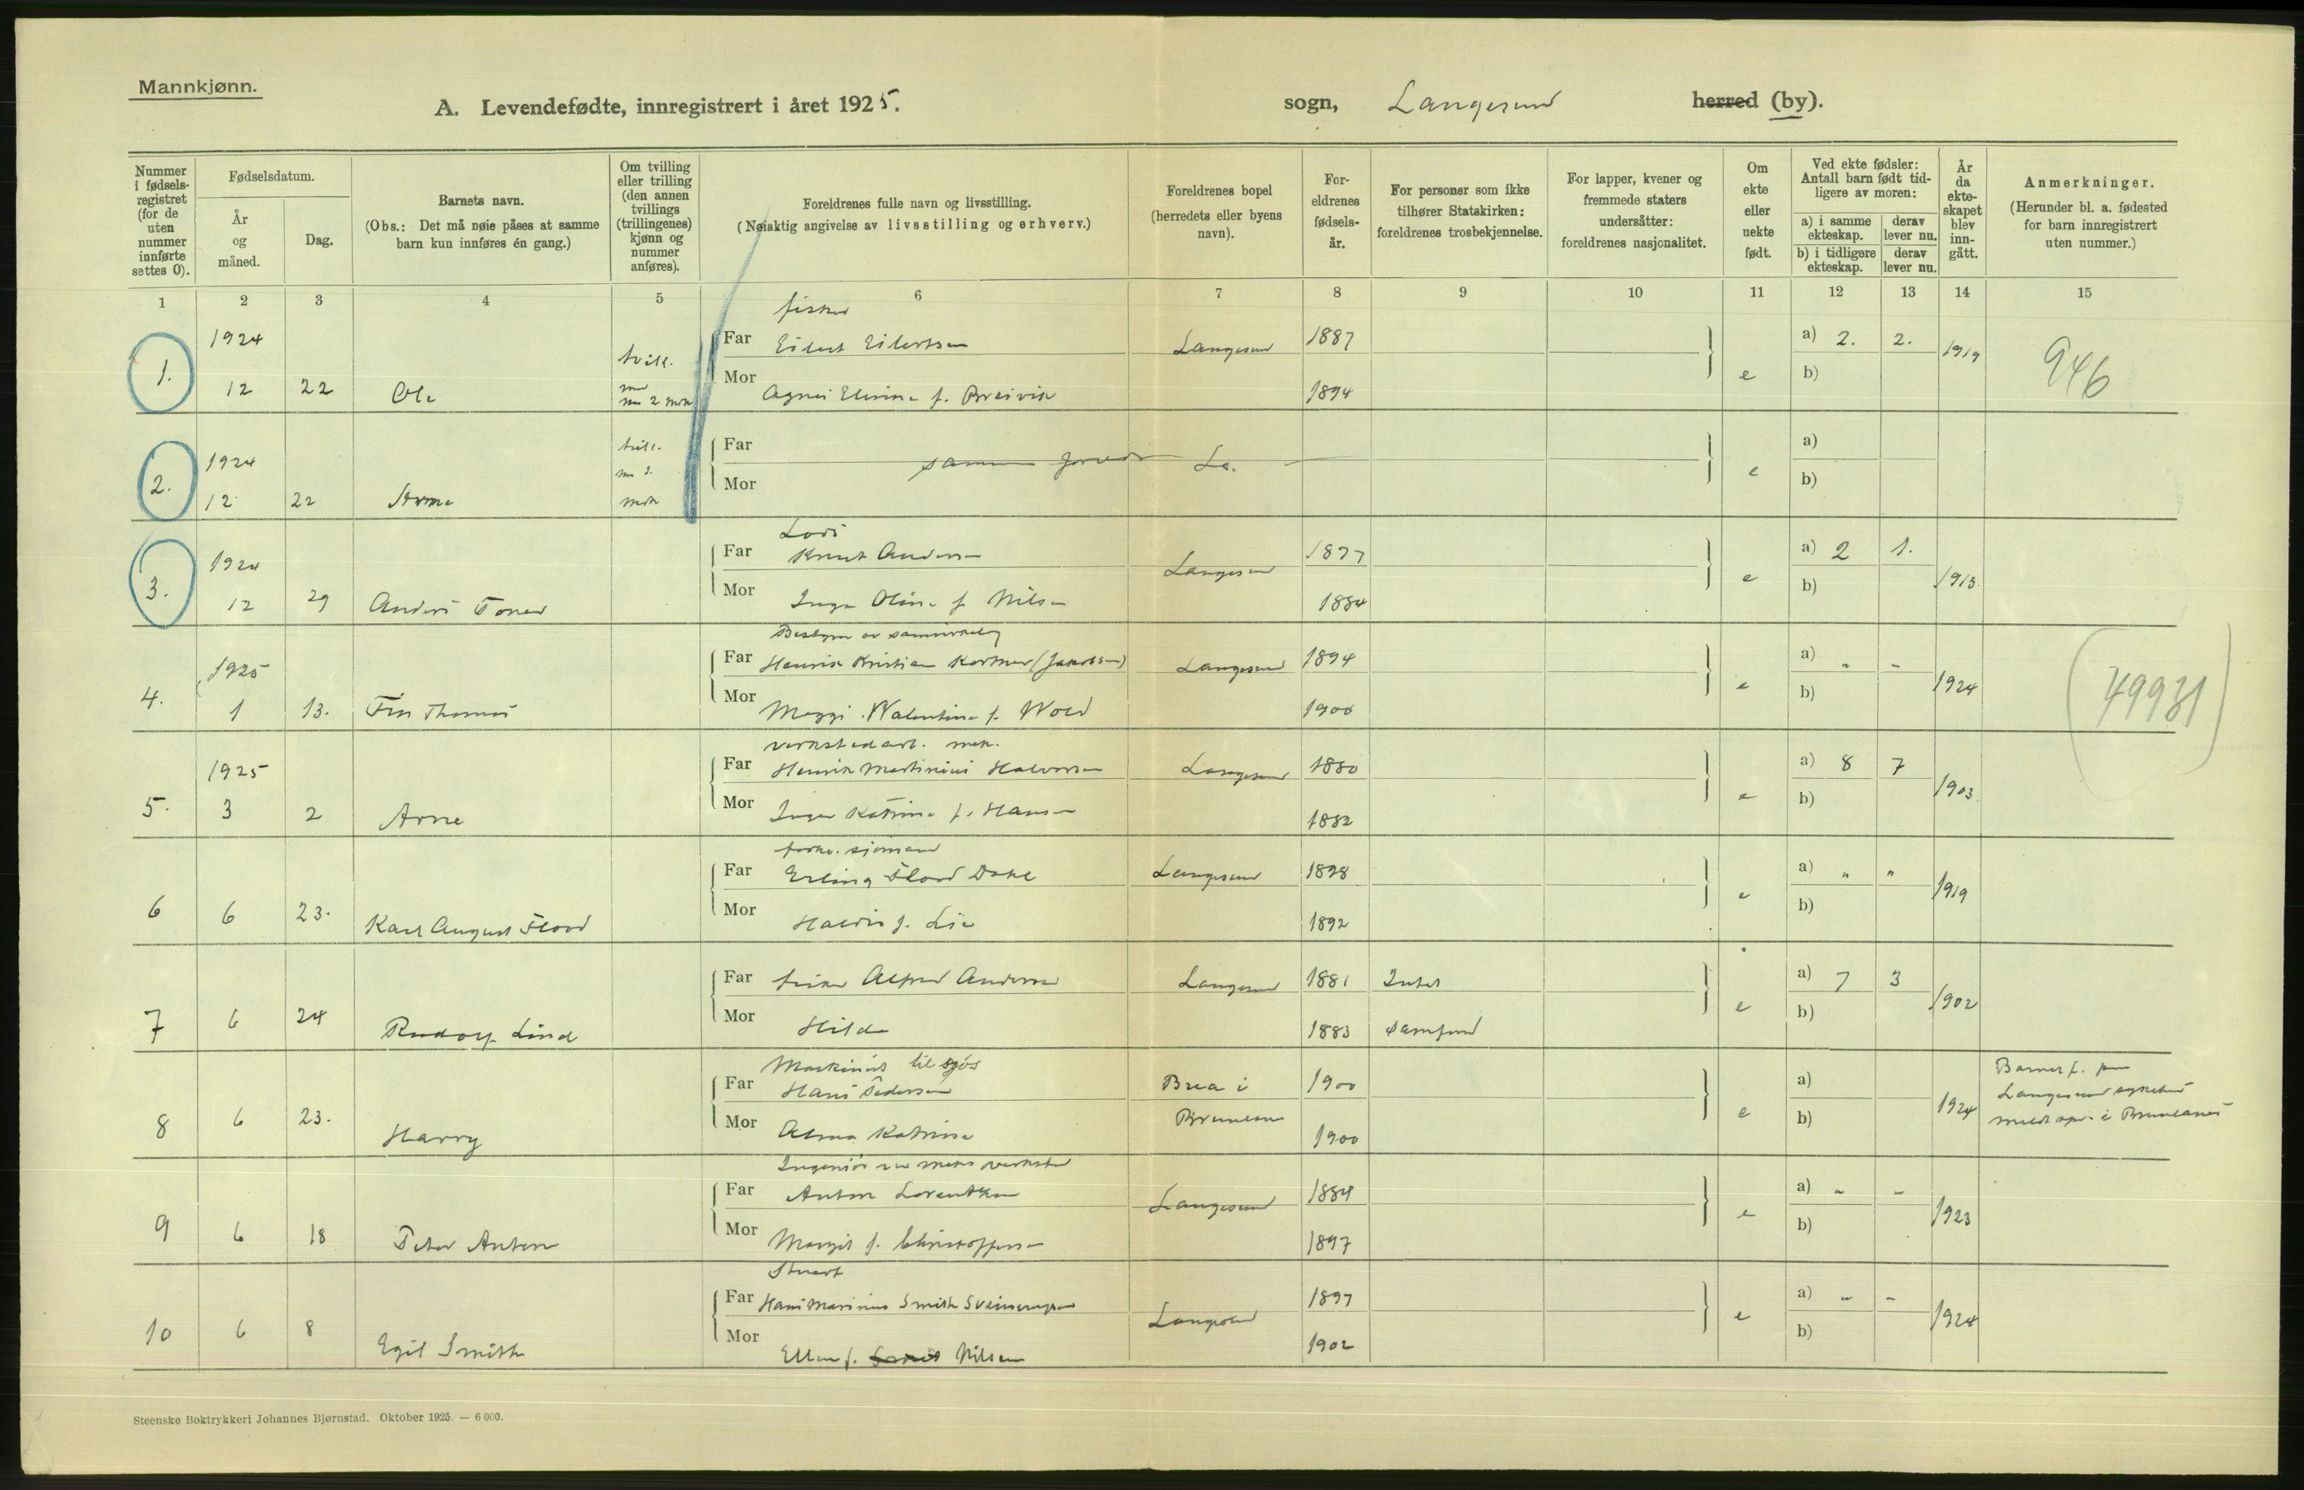 Mannkjønn.
A. Levendefødte, innregistrert i året 1925.
sogn, Langesund herred (by).
Nummer i fødselsregistret (for de uten nummer innførte settes 0).
Fødselsdatum.
År og måned.
Dag.
Barnets navn.
(Obs.: Det må nøie påses at samme barn kun innføres én gang.)
Om tvilling eller trilling (den annen tvillings (trillingenes) kjønn og nummer anføres).
Foreldrenes fulle navn og livsstilling.
(Nøiaktig angivelse av livsstilling og erhverv.)
Foreldrenes bopel (herredets eller byens navn).
Foreldrenes fødselsår.
For personer som ikke tilhører Statskirken: foreldrenes trosbekjennelse.
For lapper, kvener og fremmede staters undersåtter: foreldrenes nasjonalitet.
Om ekte eller uekte født.
Ved ekte fødsler: Antall barn født tidligere av moren:
a) i samme ekteskap.
derav lever nu.
b) i tidligere ekteskap.
derav lever nu.
År da ekteskapet blev inngått.
Anmerkninger.
(Herunder bl. a. fødested for barn innregistrert uten nummer.)
1 2 3 4 5 6 7 8 9 10 11 12 13 14 15
fisker
1. 1924 12 22 Ole tvill. m 2 mk
Far Eilert Eilertsen Langesund 1887 e a) 2. 2. 1919 946
Mor Agnes f. Breivik 1894 b)
2. 1924 12 22 Arne tvill. mk
Far samme La. e a)
Mor b)
3. 1924 12 29 Anders
Far Knut Andersen Langesund 1877 e a) 2 1. 1913
Mor Inga Oline f. Nilsen 1884 b)
Bestyrer av
4. 1925 1 13. Fin Thomas
Far Henrik Kristian (Jakobsen) Langesund 1894 e a) „ „ 1924 (49931)
Mor Maggi Walentine f. Wold 1900 b)
verkstedarb. mek.
5. 1925 3 2 Arne
Far Henrik Martinius Halvorsen Langesund 1880 e a) 8 7 1903
Mor Inger Katrine f. Hansen 1882 b)
forhv. sjømand
6 6 23. Karl August Flood
Far Erling Flood Dahl Langesund 1898 e a) „ „ 1919
Mor Haldis f. Lie 1892 b)
7 6 24 Rudolf Lind
Far fisker Alfred Andersen Langesund 1881 Intet e a) 7 3 1902
Mor Hilda 1883 samfund b)
Maskinist til sjøs
8 6 23. Harry
Far Hans Pedersen Brea i 1900 e a) 1924 Barnet f. paa Langesund sykehus
Mor Alma Katrine Brunlanes 1900 b) meldt opr. i Brunlanes
Ingeniør ved mek verksted
9 6 18 Peter Anton
Far Anton Lorentzen Langesund 1884 e a) „ „ 1923
Mor Margit f. Christoffersen 1897 b)
Stuert
10 6 8 Egil Smith
Far Hans Marinius Smith Langesund 1897 e a) „ „ 1924
Mor Ellen f. Nilsen 1902 b)
Steenske Boktrykkeri Johannes Bjørnstad. Oktober 1925. — 6 000.